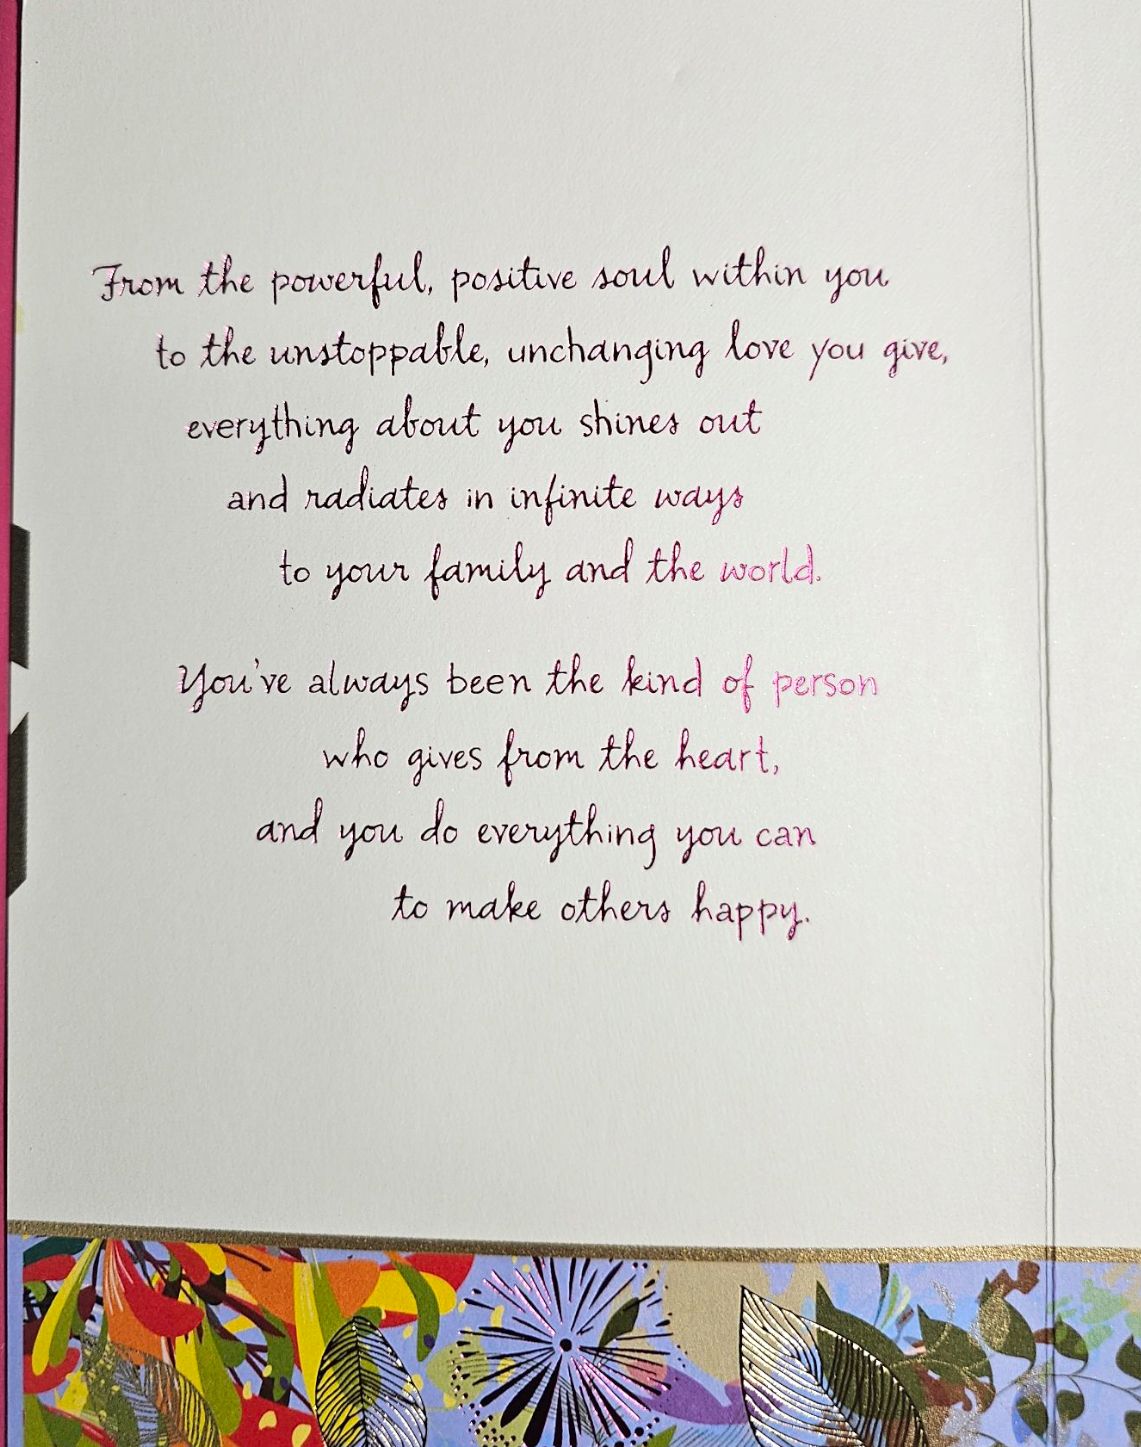 From the powerful, positive soul within you
to the unstoppable, unchanging love you give,
everything about you shines out
and radiates in infinite ways
to your family and the world.
You've always been the kind of person
who gives from the heart,
and you do everything you can
to make others happy.